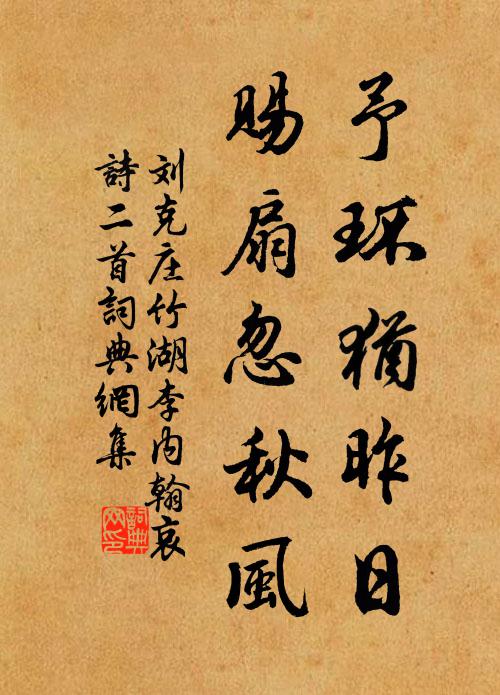 予环猶昨日
賜扇忽秋風
刘克庄竹湖李内翰哀
詩二首詞典網集